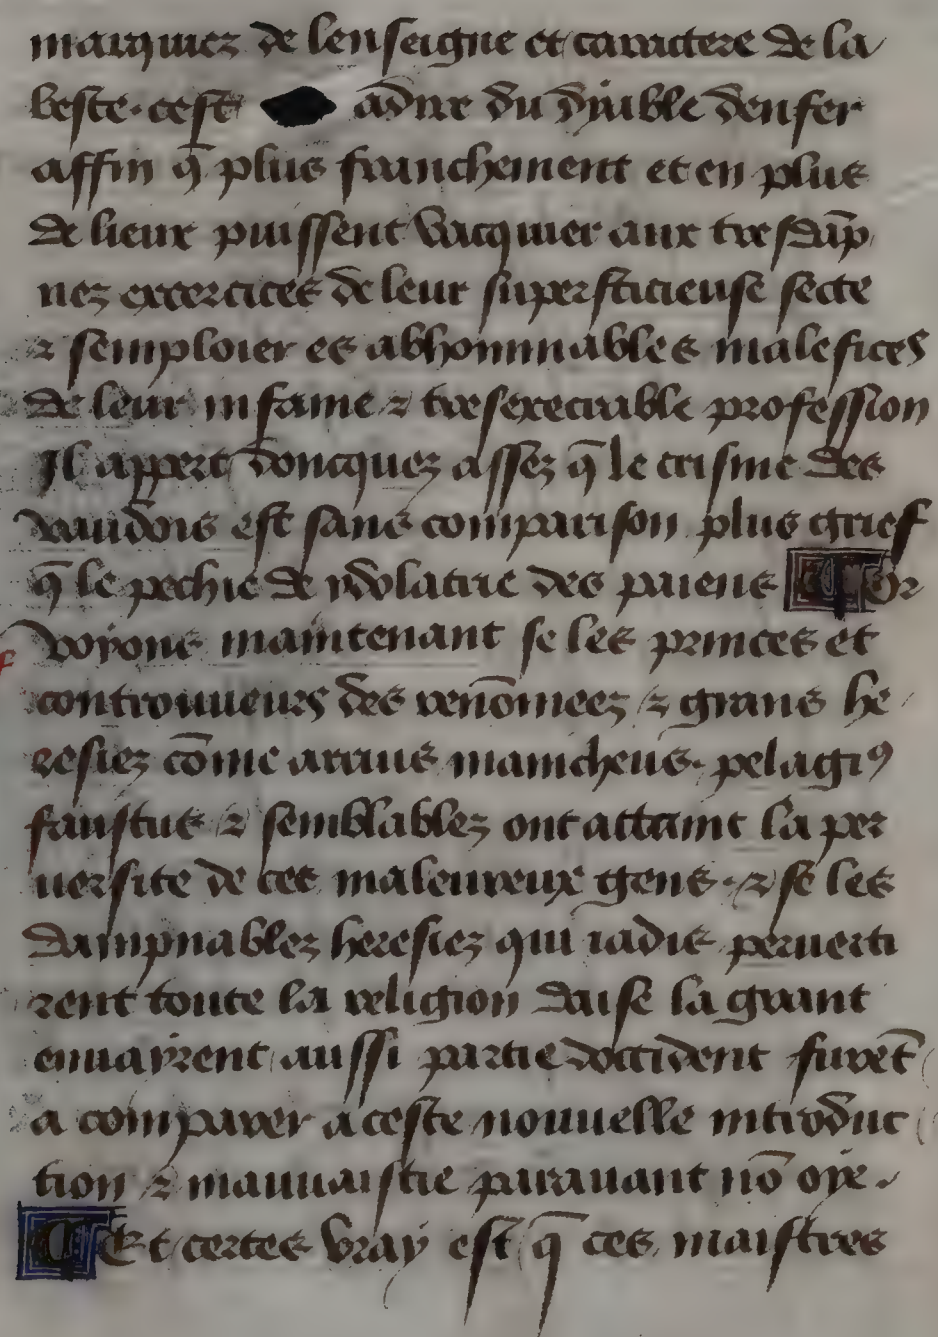 marquiez de lenseigne et caractere de la
beste. cest adire du dyable denfer
affin q̄ plus franchement et en plus
de lieux puissent vacquier aux tresdāp
nez excercices de leur supersticieuse secte
⁊ semploier es abhominables malefices
de leur infame ⁊ tresexecrable profession
Il appert doncquez assez q̄ le crisme des
vaudois est sans comparison plus grief
q̄ le pechie de ydolatrie des paiens ¶ Or
voyons maintenant se les princes et
controuueurs des renōmeez ⁊ grans he
resiez cōme arrius manicheus. pelagiꝰ
faustus ⁊ semblablez ont attaint la per
uersite de ces maleureux gens. ⁊ se les
dampnablez heresiez qui iadis peruerti
rent toute la religion daise la grant
enuayrent aussi partie doccident furēt
a comparer a ceste nouuelle introduc
tion ⁊ mauuaistie parauant nō oye.
¶ Et certes vray est q̄ ces maistres